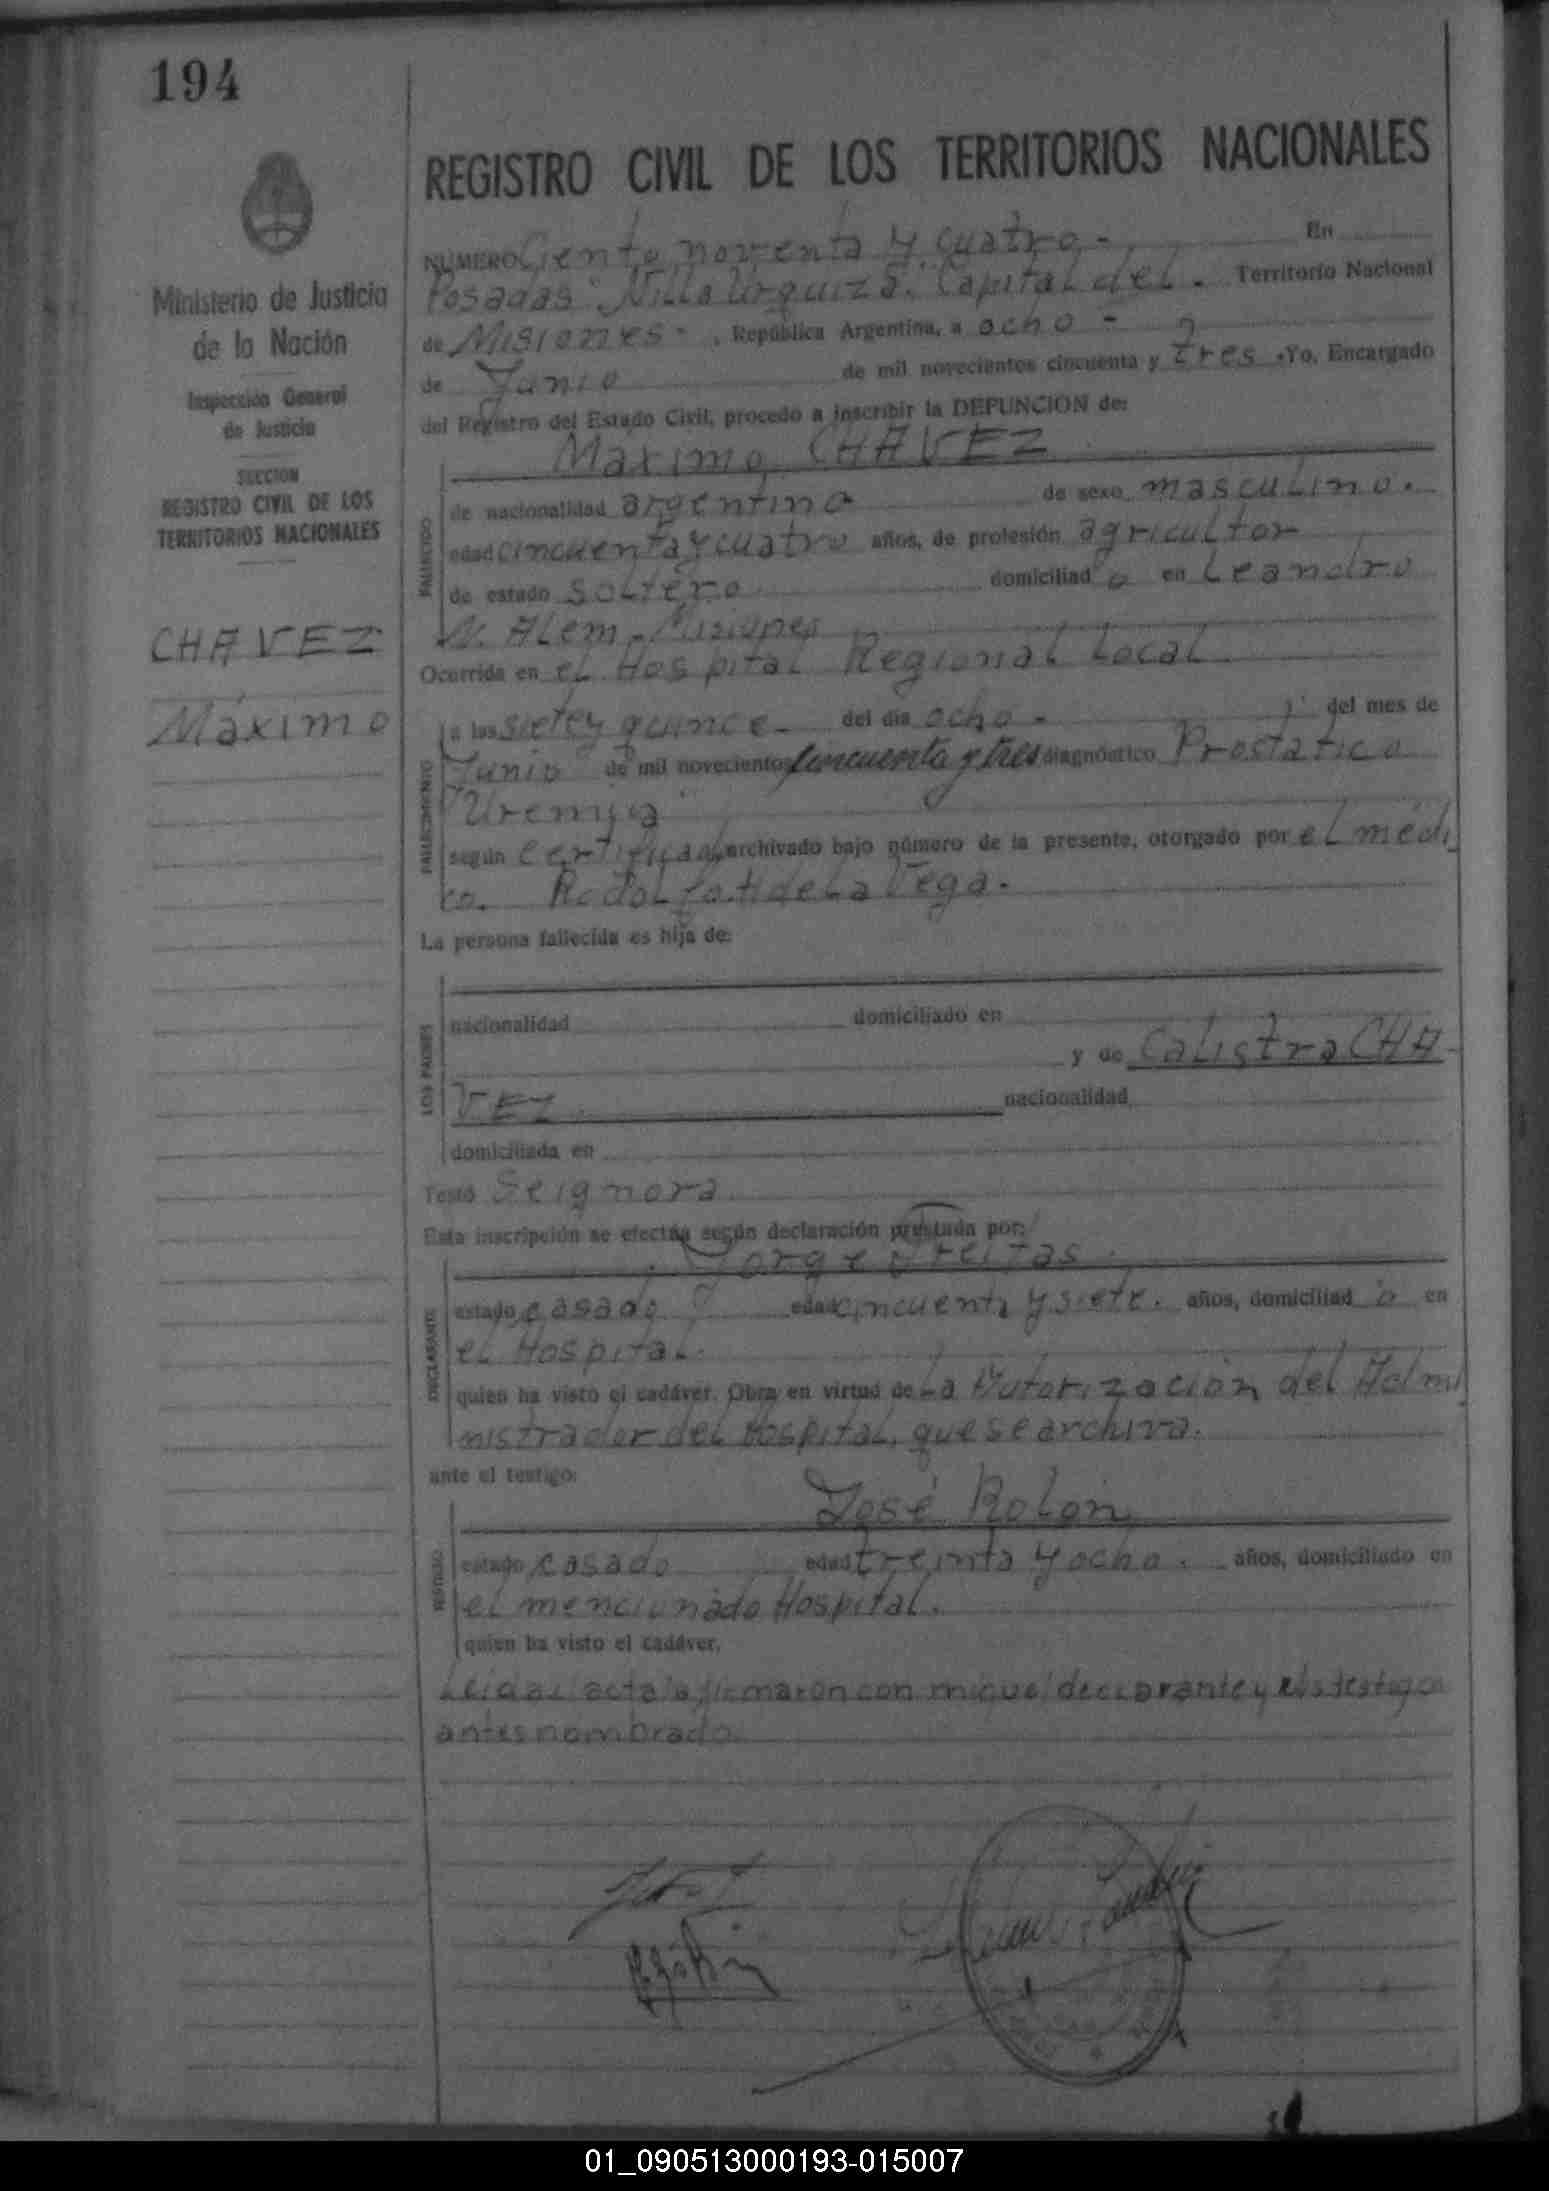 194
REGISTRO CIVIL DE LOS TERRITORIOS NACIONALES
Ministerio de Justicia
de la Nación
Inspección General
de Justicia
SECCION
REGISTRO CIVIL DE LOS
TERRITORIOS NACIONALES
CHAVEZ
Máximo
NUMERO Ciento noventa y cuatro - En
Posadas "Villa Urquiza" Capital del. Territorio Nacional
de Misiones - , República Argentina, a ocho -
de Junio de mil novecientos cincuenta y tres .Yo, Encargado
del Registro del Estado Civil, procedo a inscribir la DEFUNCION de:
Máximo CHAVEZ
FALLECIDO
de nacionalidad argentina de sexo masculino.
edad cincuenta y cuatro años, de profesión agricultor
de estado soltero domiciliad o en Leandro
N. ALem - Misiones
Ocurrida en eL Hospital Regional Local
FALLECIMIENTO
a las siete y quince - del día ocho - del mes de
Junio de mil novecientos cincuenta y tres diagnóstico Prostático
"Uremia"
según certificado archivado bajo número de la presente, otorgado por eL médi
co. Rodolfo H de La Vega.
La persona fallecida es hija de:
LOS PADRES
nacionalidad domiciliado en
y de Calistra CHA-
VEZ nacionalidad
domiciliada en
Testó Se ignora
Esta inscripción se efectúa según declaración prestada por:
Jorge Freitas
DECLARANTE
estado casado edad cincuenta y siete. años, domiciliad o en
eL Hospital.
quien ha visto el cadáver. Obra en virtud de La Autorización del Admi
nistrador del Hospital, que se archiva.
ante el testigo:
José Rolón
TESTIGO
estado casado edad treinta y ocho. años, domiciliado en
el mencionado Hospital.
quien ha visto el cadáver.
Leida el acta la firmaron con migo el declarante y el testigo
antes nombrado.
01_090513000193-015007